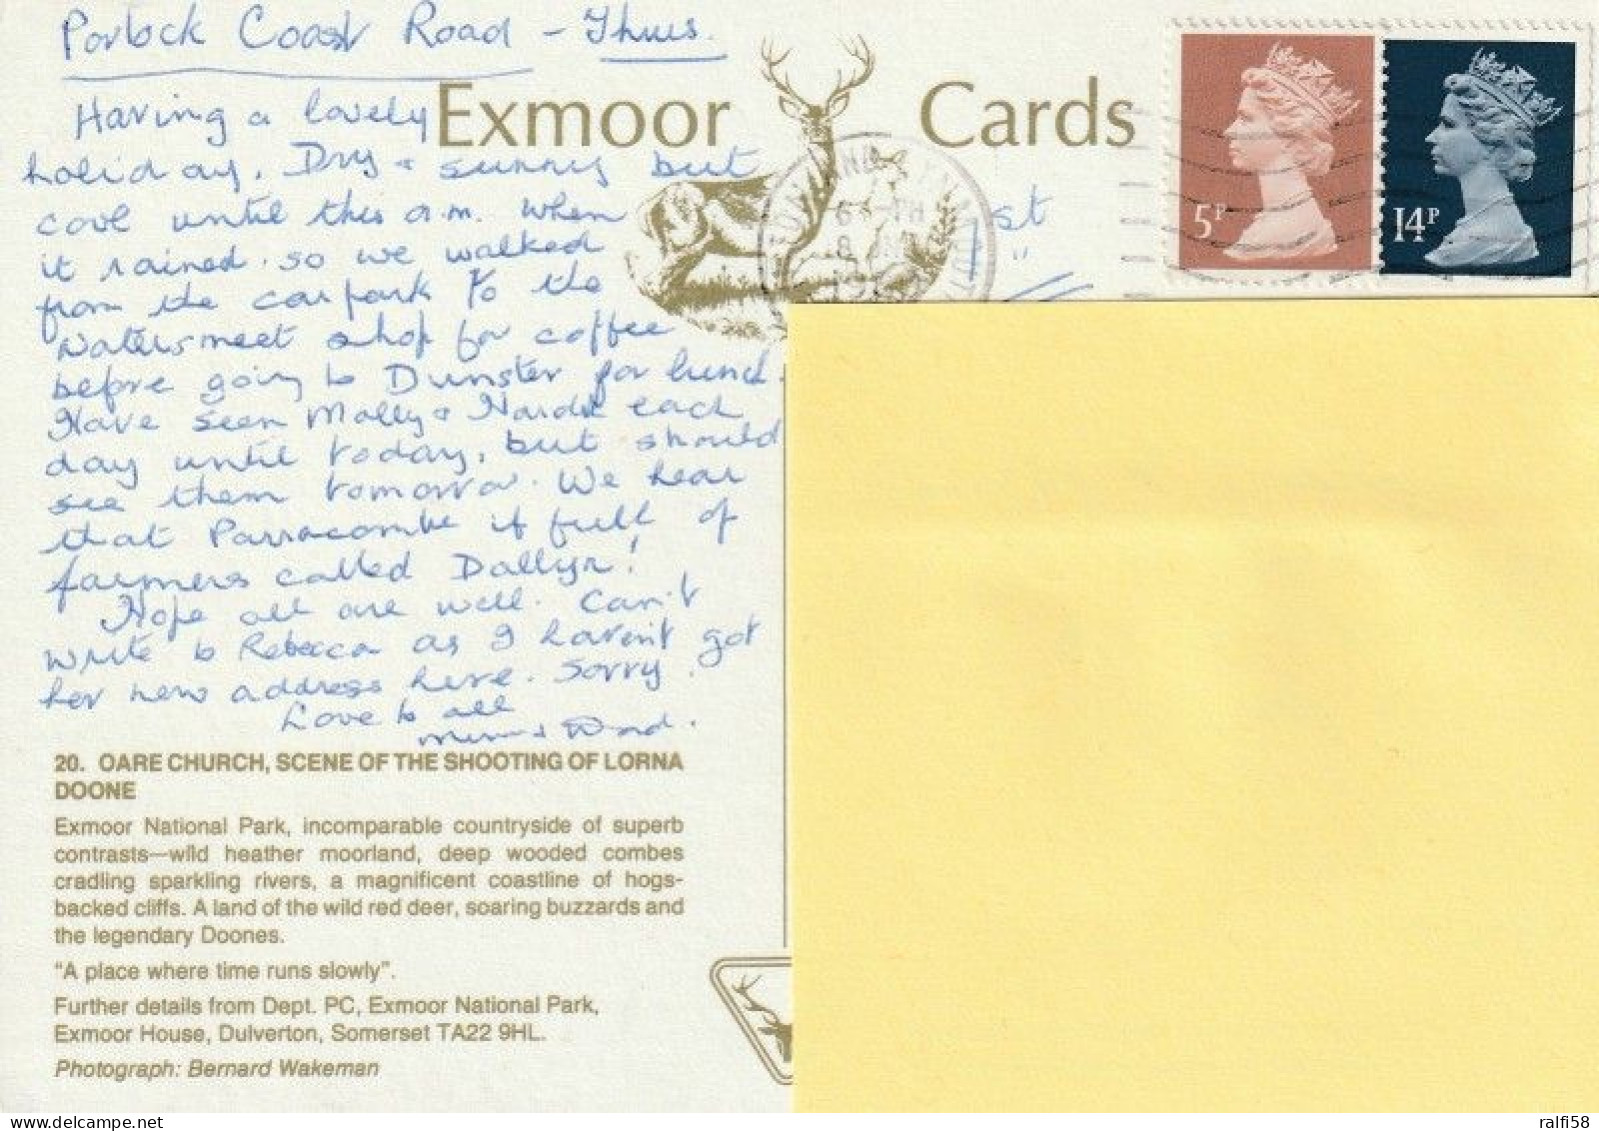 Porlock Coast Road - Thurs.
Having a lovely
holiday. Dry + sunny but
cool until this a.m. when
it rained. so we walked
from the carpark to the
Watersmeet shop for coffee
before going to Dunster for lunch.
Have seen Molly + each
day until today, but should
see them tomorrow. We hear
that Parracombe is full of
farmers called Dallyn!
Hope all are well. Can't
write to Rebecca as I haven't got
her new address here. Sorry.
Love to all
Mum + Dad.
Exmoor Cards
1st
5P
14P
20. OARE CHURCH, SCENE OF THE SHOOTING OF LORNA
DOONE
Exmoor National Park, incomparable countryside of superb
contrasts—wild heather moorland, deep wooded combes
cradling sparkling rivers, a magnificent coastline of hogs-
backed cliffs. A land of the wild red deer, soaring buzzards and
the legendary Doones.
"A place where time runs slowly".
Further details from Dept. PC, Exmoor National Park,
Exmoor House, Dulverton, Somerset TA22 9HL.
Photograph: Bernard Wakeman
ralfi58